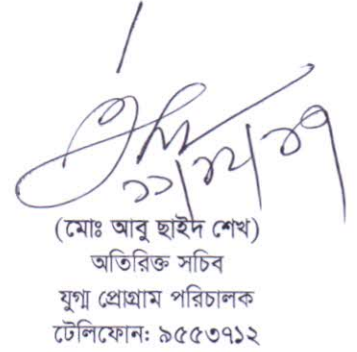 ১১/১২/১৭
(মোঃ আবু ছাইদ শেখ)
অতিরিক্ত সচিব
যুগ্ম প্রোগ্রাম পরিচালক
টেলিফোন: ৯৫৫৩৭১২